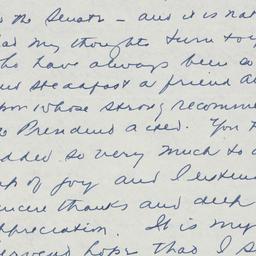 to the Senate - and it is nat
my thoughts turn to y
who have always been so
steadfast a friend a
upon whose strong recomme
President acted. You h
added so very much to
cup of joy and I extend
sincere thanks and deep
appreciation. It is my
fervent hope that I s